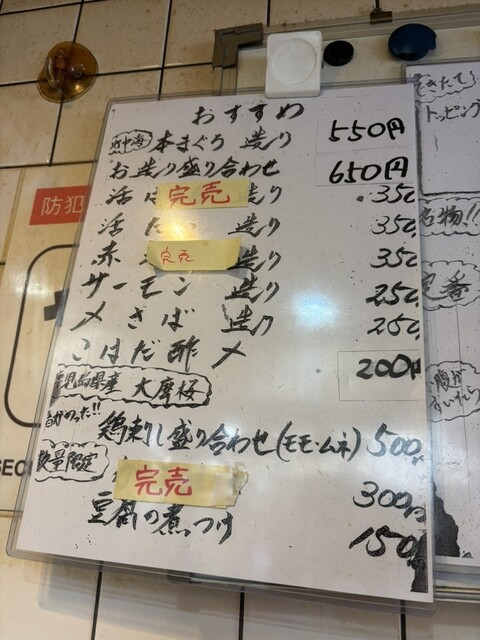 おすすめ
地中海 本まぐろ 造り 550円
お造り盛り合わせ 650円
活は 完売 造り 350
活たい 造り 350
赤 完売 造り 350
サーモン 造り 250
〆さば 造り 250
こはだ酢〆 200円
鹿児島県産 大摩桜
旨かつった!!
鶏刺し盛り合わせ(モモ・ムネ) 500円
数量限定
完売 300円
豆腐の煮つけ 150円
防犯
SEC
トッピング
名物!!
定番